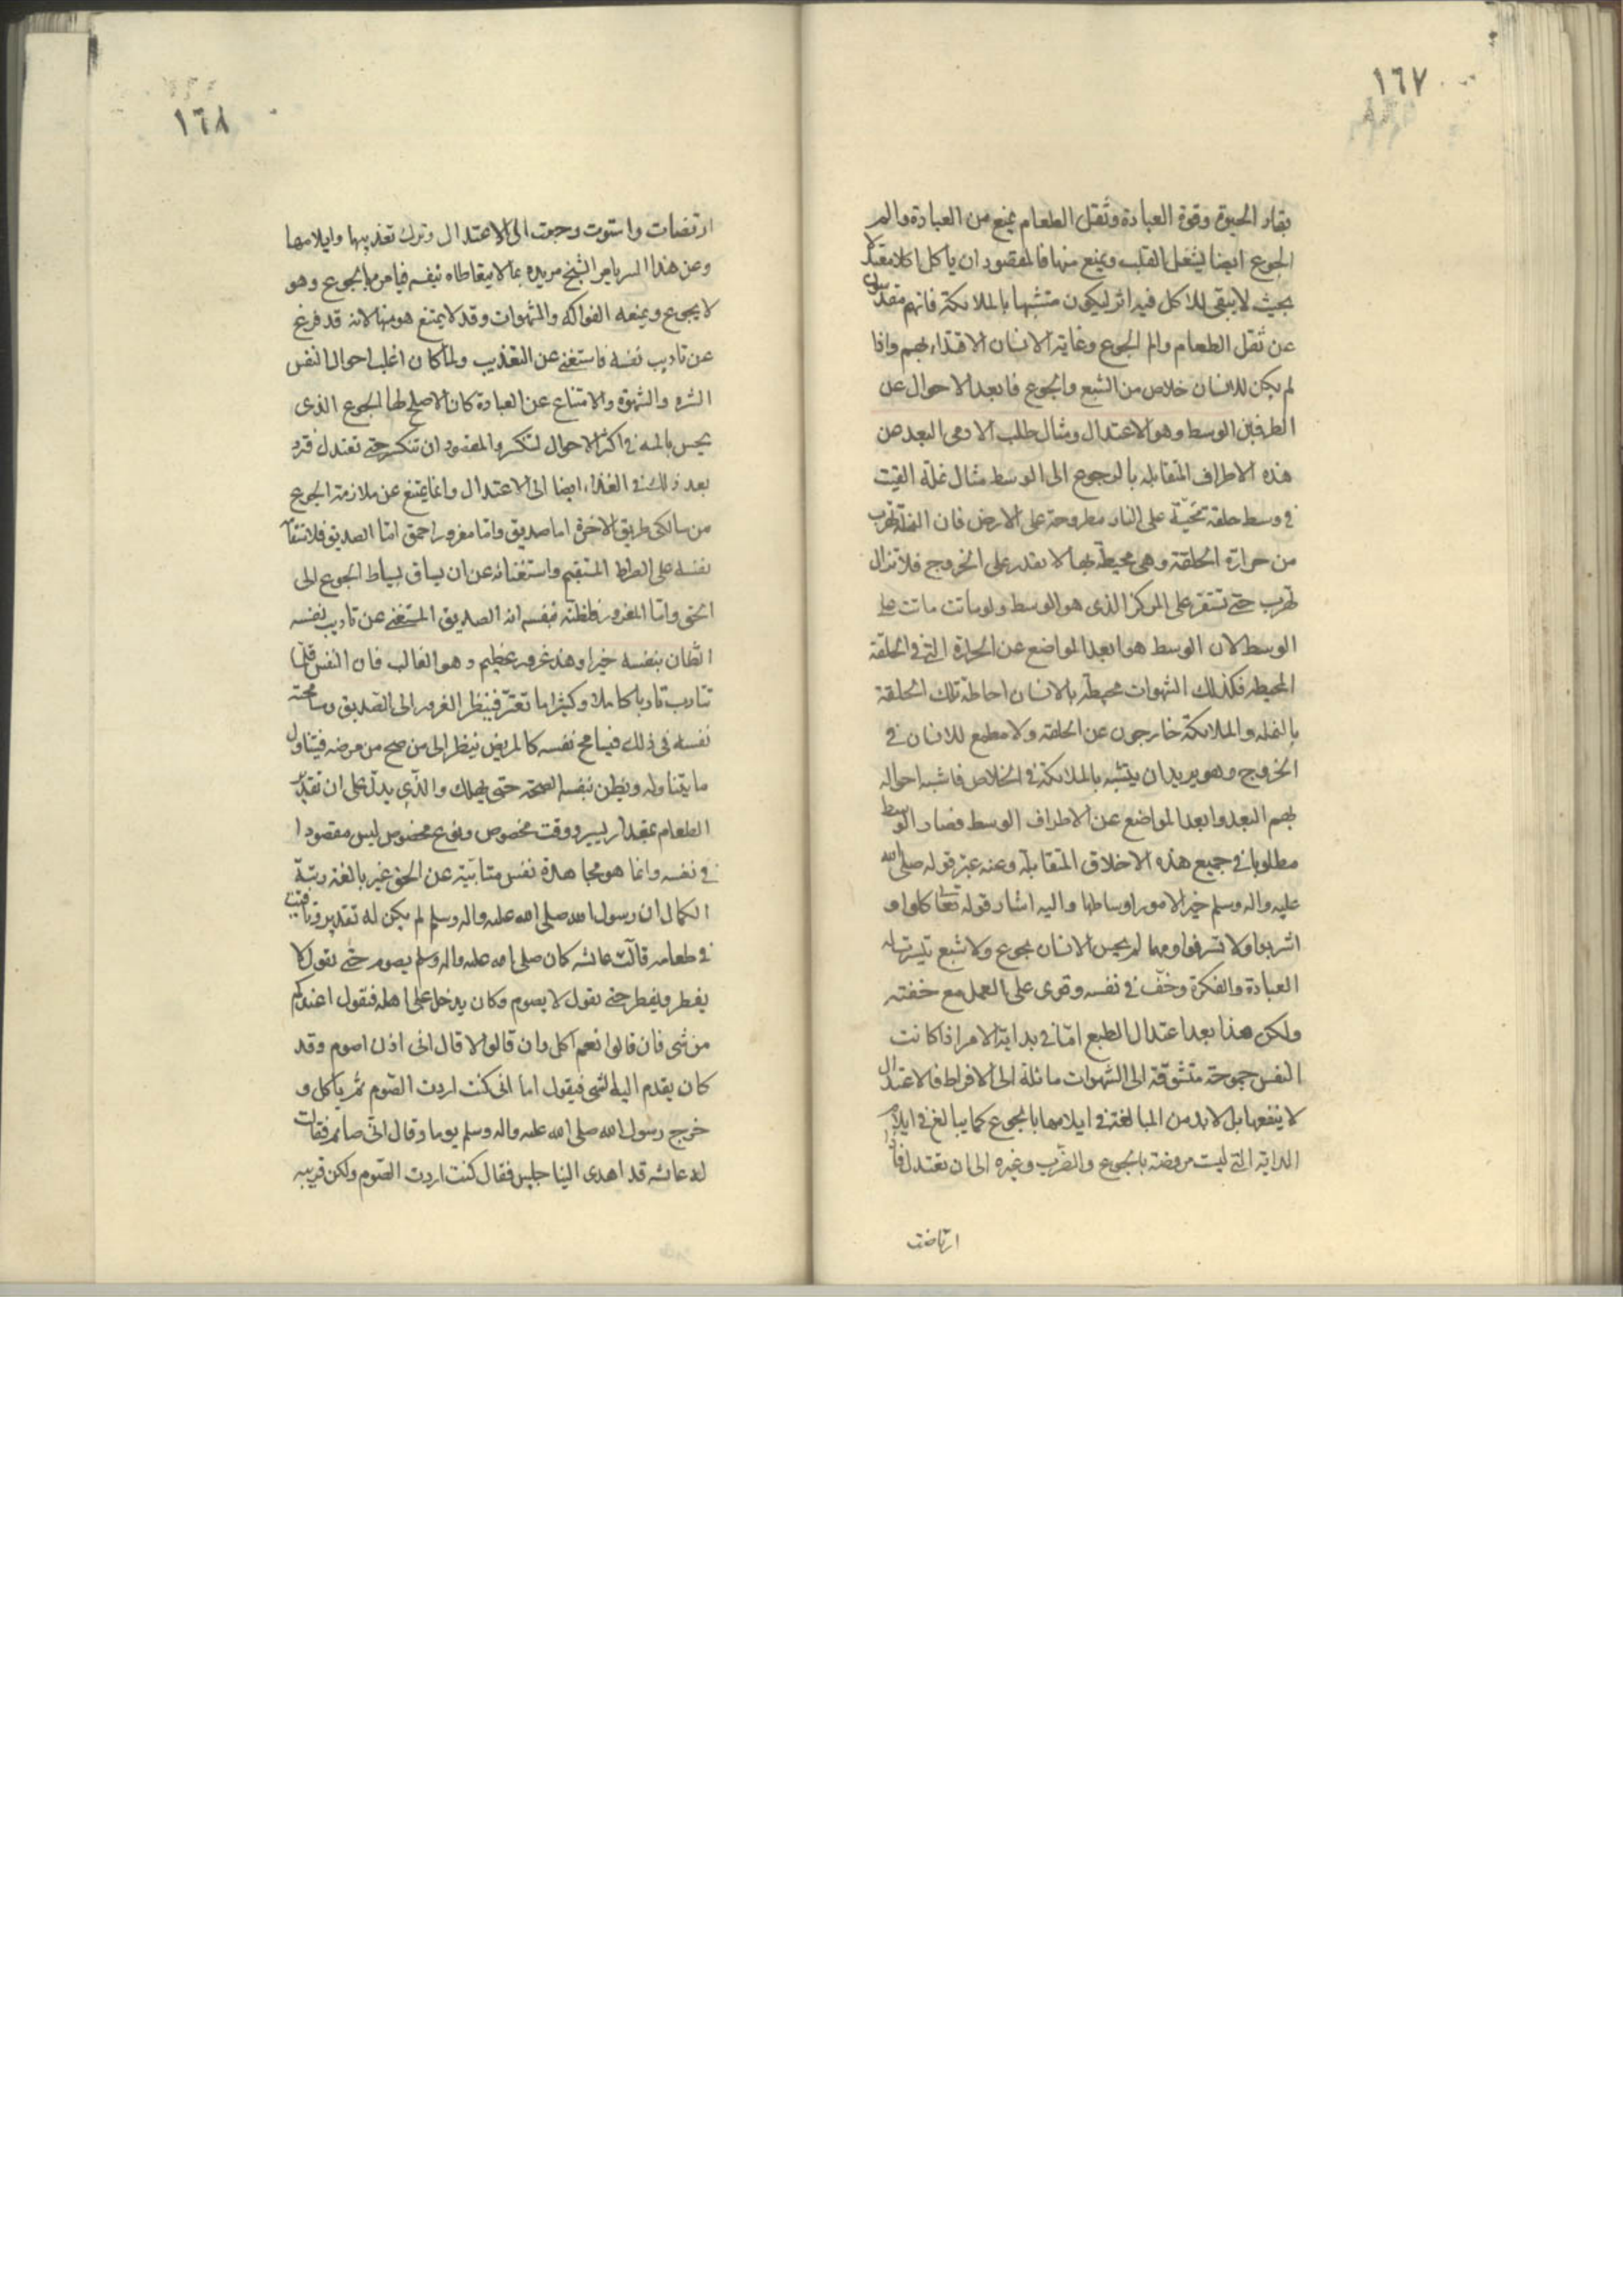 ١٦٧
بقاء الحيوة وقوة العبادة وثقل الطعام يمنع من العبادة والم
الجوع ايضا يشغل القلب ويمنع منها فالمقصود ان ياكل اكلا مقتدلا
بحيث لا يبقى للاكل فيه اثر ليكون متشبها بالملائكة فانهم مقدسون
عن ثقل الطعام والم الجوع وغاية الانسان الاقتداء بهم واذا
لم يكن للانسان خلاص من الشبع والجوع فابعد الاحوال عن
الطرفين الوسط وهو الاعتدال ومثال طلب الادمى البعد من
هذه الاطراف المتقابلة بالرجوع الى الوسط مثال نملة القيت
فى وسط حلقة محمية على النار مطروحة على الارض فان النملة تهرب
من حرارة الحلقة وهى محيطة بها لا يقدر على الخروج فلا تزال
تهرب حتى تستقر على المركز الذى هو الوسط ولو ماتت ماتت على
الوسط لان الوسط هو ابعد المواضع عن الحرارة التى فى الحلقة
المحيطة فكذلك الشهوات محيطة بالانسان احاطة تلك الحلقة
بالنملة والملائكة خارجون عن الحلقة ولا مطمع للانسان فى
الخروج وهو يريد ان يتشبه بالملائكة فى الخلاص فاشبه احواله
بهم البعد وابعد المواضع عن الاطراف الوسط فصار الوسط
مطلوبا فى جميع هذه الاخلاق المتقابلة وعنه عبر قوله صلى الله
عليه واله وسلم خير الامور اوساطها واليه اشار قوله تعا كلوا و
اشربوا ولا تسرفوا ومهما لم يحس الانسان بجوع ولا شبع تيسرت له
العبادة والفكرة وخف فى نفسه وقوى على العمل مع خفته
ولكن هذا بعد اعتدال الطبع اما فى بداية الامر اذا كانت
النفس جموحة متشوقة الى الشهوات مائلة الى الافراط فالاعتدال
لا ينفعها بل لا بد من المبالغة فى ايلامها بالجوع كما يبالغ فى ايلام
الدابة التى ليست مروضة بالجوع والضرب وغيره الى ان تعتدل فاذا
ارتاضت
١٦٨
ارتضات واستوت رجعت الى الاعتدال وترك تعذيبها وايلامها
وعن هذا السر يامر الشيخ مريده بما لا يتعاطاه نفسه فيامره بالجوع وهو
لا يجوع ويمنعه الفواكه والشهوات وقد لا يمتنع هو منها لانه قد فرغ
عن تاديب نفسه فاستغنى عن التعذيب ولما كان اغلب احوال النفس
الشره والشهوة والامتناع عن العبادة كان الاصلح لها الجوع الذى
يحس بالمه فى اكثر الاحوال لتنكسر والمقصود ان تنكسر حتى تعتدل فترد
بعد ذلك فى الغذاء ايضا الى الاعتدال وانما يمتنع عن ملازمة الجوع
من سالكى طريق الاخرة اما صديق واما مغرور احمق اما الصديق فلاستقا
نفسه على الصراط المستقيم واستغنائه عن ان يساق بسياط الجوع الى
الحق واما المغرور فلظنه بنفسه انه الصديق المستغنى عن تاديب نفسه
الظان بنفسه خيرا وهذ غرور عظيم وهو الغالب فان النفس قلما
تتادب تادبا كاملا وكثيرا ما تغتر فينظر الغرور الى الصديق ومسامحته
نفسه فى ذلك فيسامح نفسه كالمريض ينظر الى من صح من مرضه فيتناول
ما يتناوله ويظن بنفسه الصحة حتى يهلك والذى يدل على ان تقدير
الطعام بمقدار يسير ووقت مخصوص ونوع مخصوص ليس مقصودا
فى نفسه وانما هو مجاهدة نفس متنائية عن الحق غير بالغة رتبة
الكمال ان رسول الله صلى الله عليه واله وسلم لم يكن له تقدير وتوقيت
فى طعامه قالت عائشه كان صلى الله عليه واله وسلم يصوم حتى نقول لا
يفطر ويفطر حتى نقول لا يصوم وكان يدخل على اهله فيقول اعندكم
من شى فان قالوا نعم اكل وان قالوا لا قال انى اذن اصوم وقد
كان يقدم اليه الشى فيقول اما انى كنت اردت الصوم ثم ياكل و
خرج رسول الله صلى الله عليه واله وسلم يوما وقال انى صائم فقالت
له عائشه قد اهدى الينا حيس فقال كنت اردت الصوم ولكن قربيه